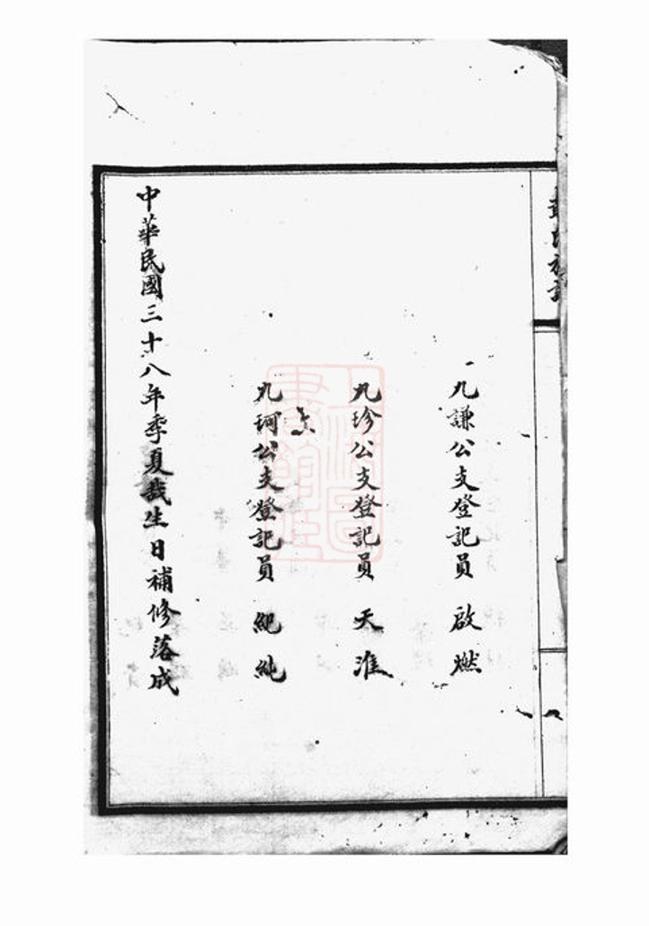 九謙公支登記員 啟燃
九珍公支登記員 天淮
九珂公支登記員 紀純
中華民國三十八年季夏哉生日補修落成